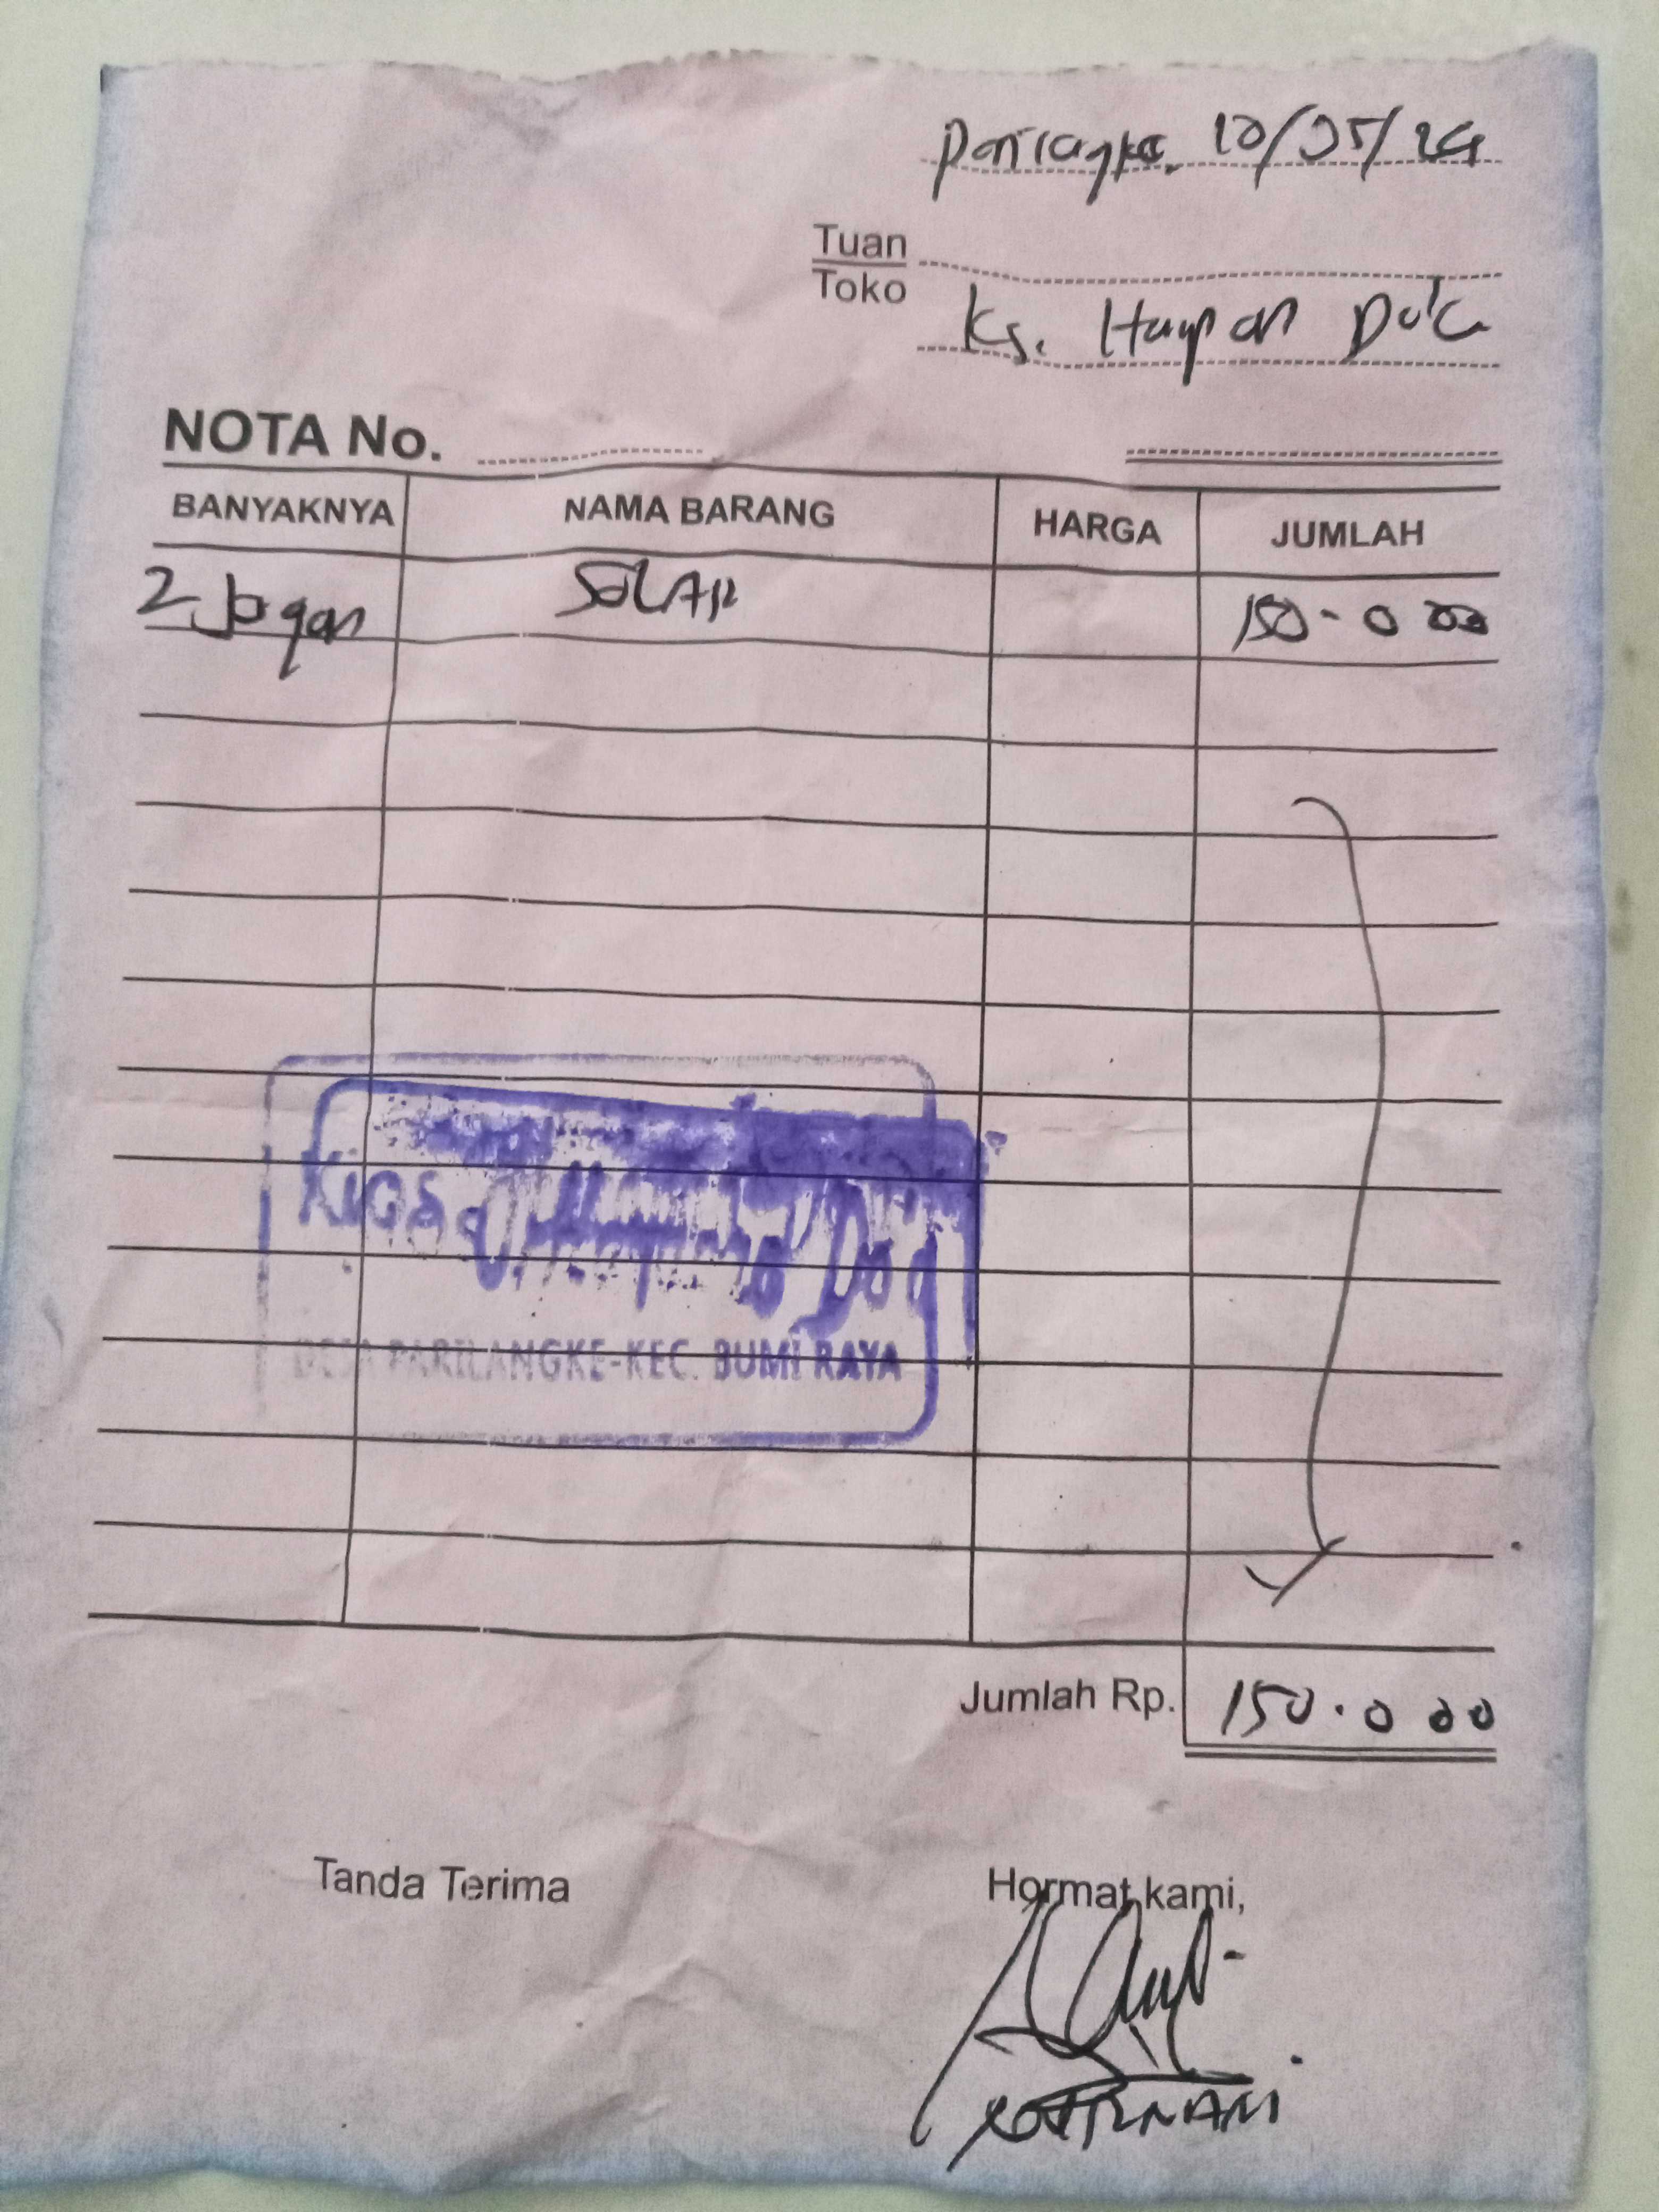 10/05/24
Tuan
Toko
Ks. Harapan Doa
NOTA No.
BANYAKNYA NAMA BARANG HARGA JUMLAH
2 Jogan SOLAR 150.000
Kios
DESA PARILANGKE-KEC. BUMI RAYA
Jumlah Rp. 150.000
Tanda Terima Hormat kami,